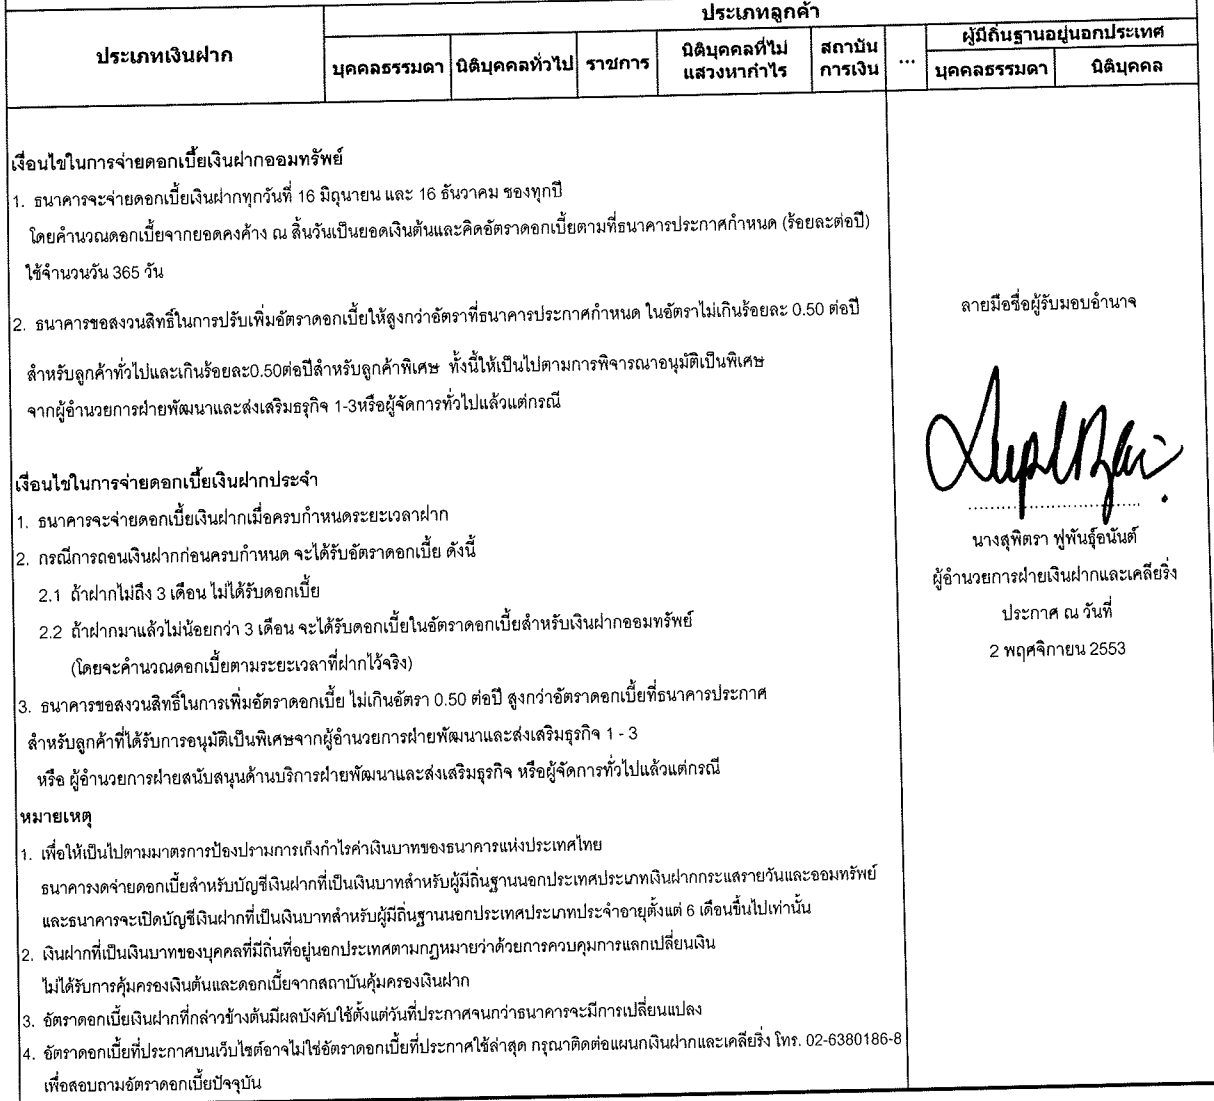 ประเภทลูกค้า
ประเภทเงินฝาก
บุคคลธรรมดา
นิติบุคคลทั่วไป
ราชการ
นิติบุคคลที่ไม่
แสวงหากำไร
สถาบัน
การเงิน
...
ผู้มีถิ่นฐานอยู่นอกประเทศ
บุคคลธรรมดา
นิติบุคคล
เงื่อนไขในการจ่ายดอกเบี้ยเงินฝากออมทรัพย์
1. ธนาคารจะจ่ายดอกเบี้ยเงินฝากทุกวันที่ 16 มิถุนายน และ 16 ธันวาคม ของทุกปี
โดยคำนวณดอกเบี้ยจากยอดคงค้าง ณ สิ้นวันเป็นยอดเงินต้นและคิดอัตราดอกเบี้ยตามที่ธนาคารประกาศกำหนด (ร้อยละต่อปี)
ใช้จำนวนวัน 365 วัน
2. ธนาคารขอสงวนสิทธิ์ในการปรับเพิ่มอัตราดอกเบี้ยให้สูงกว่าอัตราที่ธนาคารประกาศกำหนด ในอัตราไม่เกินร้อยละ 0.50 ต่อปี
สำหรับลูกค้าทั่วไปและเกินร้อยละ0.50ต่อปีสำหรับลูกค้าพิเศษ ทั้งนี้ให้เป็นไปตามการพิจารณาอนุมัติเป็นพิเศษ
จากผู้อำนวยการฝ่ายพัฒนาและส่งเสริมธรุกิจ 1-3หรือผู้จัดการทั่วไปแล้วแต่กรณี
เงื่อนไขในการจ่ายดอกเบี้ยเงินฝากประจำ
1. ธนาคารจะจ่ายดอกเบี้ยเงินฝากเมื่อครบกำหนดระยะเวลาฝาก
2. กรณีการถอนเงินฝากก่อนครบกำหนด จะได้รับอัตราดอกเบี้ย ดังนี้
2.1 ถ้าฝากไม่ถึง 3 เดือน ไม่ได้รับดอกเบี้ย
2.2 ถ้าฝากมาแล้วไม่น้อยกว่า 3 เดือน จะได้รับดอกเบี้ยในอัตราดอกเบี้ยสำหรับเงินฝากออมทรัพย์
(โดยจะคำนวณดอกเบี้ยตามระยะเวลาที่ฝากไว้จริง)
3. ธนาคารขอสงวนสิทธิ์ในการเพิ่มอัตราดอกเบี้ย ไม่เกินอัตรา 0.50 ต่อปี สูงกว่าอัตราดอกเบี้ยที่ธนาคารประกาศ
สำหรับลูกค้าที่ได้รับการอนุมัติเป็นพิเศษจากผู้อำนวยการฝ่ายพัฒนาและส่งเสริมธุรกิจ 1 - 3
หรือ ผู้อำนวยการฝ่ายสนับสนุนด้านบริการฝ่ายพัฒนาและส่งเสริมธุรกิจ หรือผู้จัดการทั่วไปแล้วแต่กรณี
หมายเหตุ
1. เพื่อให้เป็นไปตามมาตรการป้องปรามการเก็งกำไรค่าเงินบาทของธนาคารแห่งประเทศไทย
ธนาคารงดจ่ายดอกเบี้ยสำหรับบัญชีเงินฝากที่เป็นเงินบาทสำหรับผู้มีถิ่นฐานนอกประเทศประเภทเงินฝากกระแสรายวันและออมทรัพย์
และธนาคารจะเปิดบัญชีเงินฝากที่เป็นเงินบาทสำหรับผู้มีถิ่นฐานนอกประเทศประเภทประจำอายุตั้งแต่ 6 เดือนขึ้นไปเท่านั้น
2. เงินฝากที่เป็นเงินบาทของบุคคลที่มีถิ่นที่อยู่นอกประเทศตามกฎหมายว่าด้วยการควบคุมการแลกเปลี่ยนเงิน
ไม่ได้รับการคุ้มครองเงินต้นและดอกเบี้ยจากสถาบันคุ้มครองเงินฝาก
3. อัตราดอกเบี้ยเงินฝากที่กล่าวข้างต้นมีผลบังคับใช้ตั้งแต่วันที่ประกาศจนกว่าธนาคารจะมีการเปลี่ยนแปลง
4. อัตราดอกเบี้ยที่ประกาศบนเว็บไซต์อาจไม่ใช่อัตราดอกเบี้ยที่ประกาศใช้ล่าสุด กรุณาติดต่อแผนกเงินฝากและเคลียริ่ง โทร. 02-6380186-8
เพื่อสอบถามอัตราดอกเบี้ยปัจจุบัน
ลายมือชื่อผู้รับมอบอำนาจ
นางสุพิตรา ฟูพันธุ์อนันต์
ผู้อำนวยการฝ่ายเงินฝากและเคลียริ่ง
ประกาศ ณ วันที่
2 พฤศจิกายน 2553